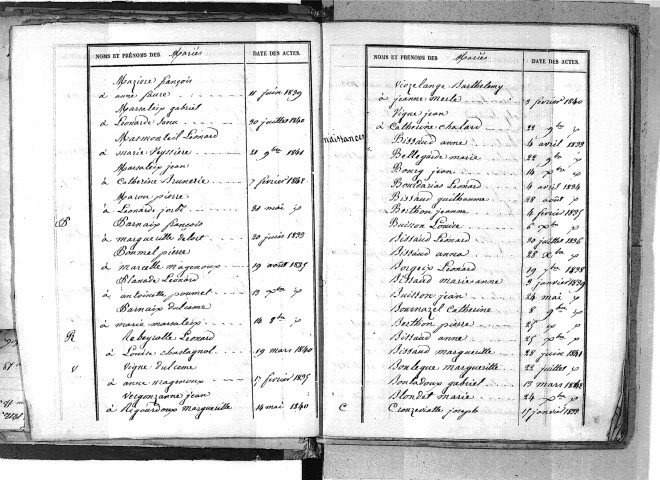 NOMS ET PRÉNOMS DES Mariés DATE DES ACTES.
Maziere françois
à anne faure 11 juin 1839
Marsaleix gabriel
à Léonarde 30 juillet 1840
Masmonteil Léonard
à marie Teyssiere 21 9bre 1841
Marsaleix jean
à Catherine Brunerie 7 février 1842
Maron pierre
à Léonarde 30 mai p
P Parnaix françois
à marguerite delort 30 juin 1833
Poumel pierre
à marcelle magenoux 19 août 1835
Planade Léonard
à antoinette poumel 13 xbre p
Parnaix dulcème
à marie marsaleix 14 8bre p
R Rebeyrolle Léonard
à Louise chastagnol 19 mars 1840
V Vigne dulcème
à anne magenoux 17 février 1835
Vergonzanne jean
à Régourdoux marguerite 14 mai 1840
NOMS ET PRÉNOMS DES Mariés DATE DES ACTES.
Viozelange Barthelemy
à jeanne merle 3 février 1840
Vigne jean
à Catherine chatard 22 9bre p
naissances Bissaud anne 4 avril 1833
Bellegarde marie 22 9bre p
Bourg jean 14 xbre p
Bourdarias Léonard 4 avril 1834
Bissaud guilhaume 28 août p
Berthon jeanne 4 février 1835
Buisson Louise 6 xbre p
Bissaud Léonard 30 juillet 1836
Bissaud anna 28 xbre p
Borgeix Léonard 19 7bre 1838
Bissaud marie anne 3 janvier 1839
Buisson jean 24 mai p
Bournazel Catherine 8 9bre p
Berthon pierre 27 p p
Bissaud anne 25 xbre p
Bissaud marguerite 28 juin 1841
Bonlegue marguerite 22 juillet p
Bontadoux gabriel 13 mars 1842
Blondet marie 24 xbre p
C Cronzevialle joseph 17 janvier 1833